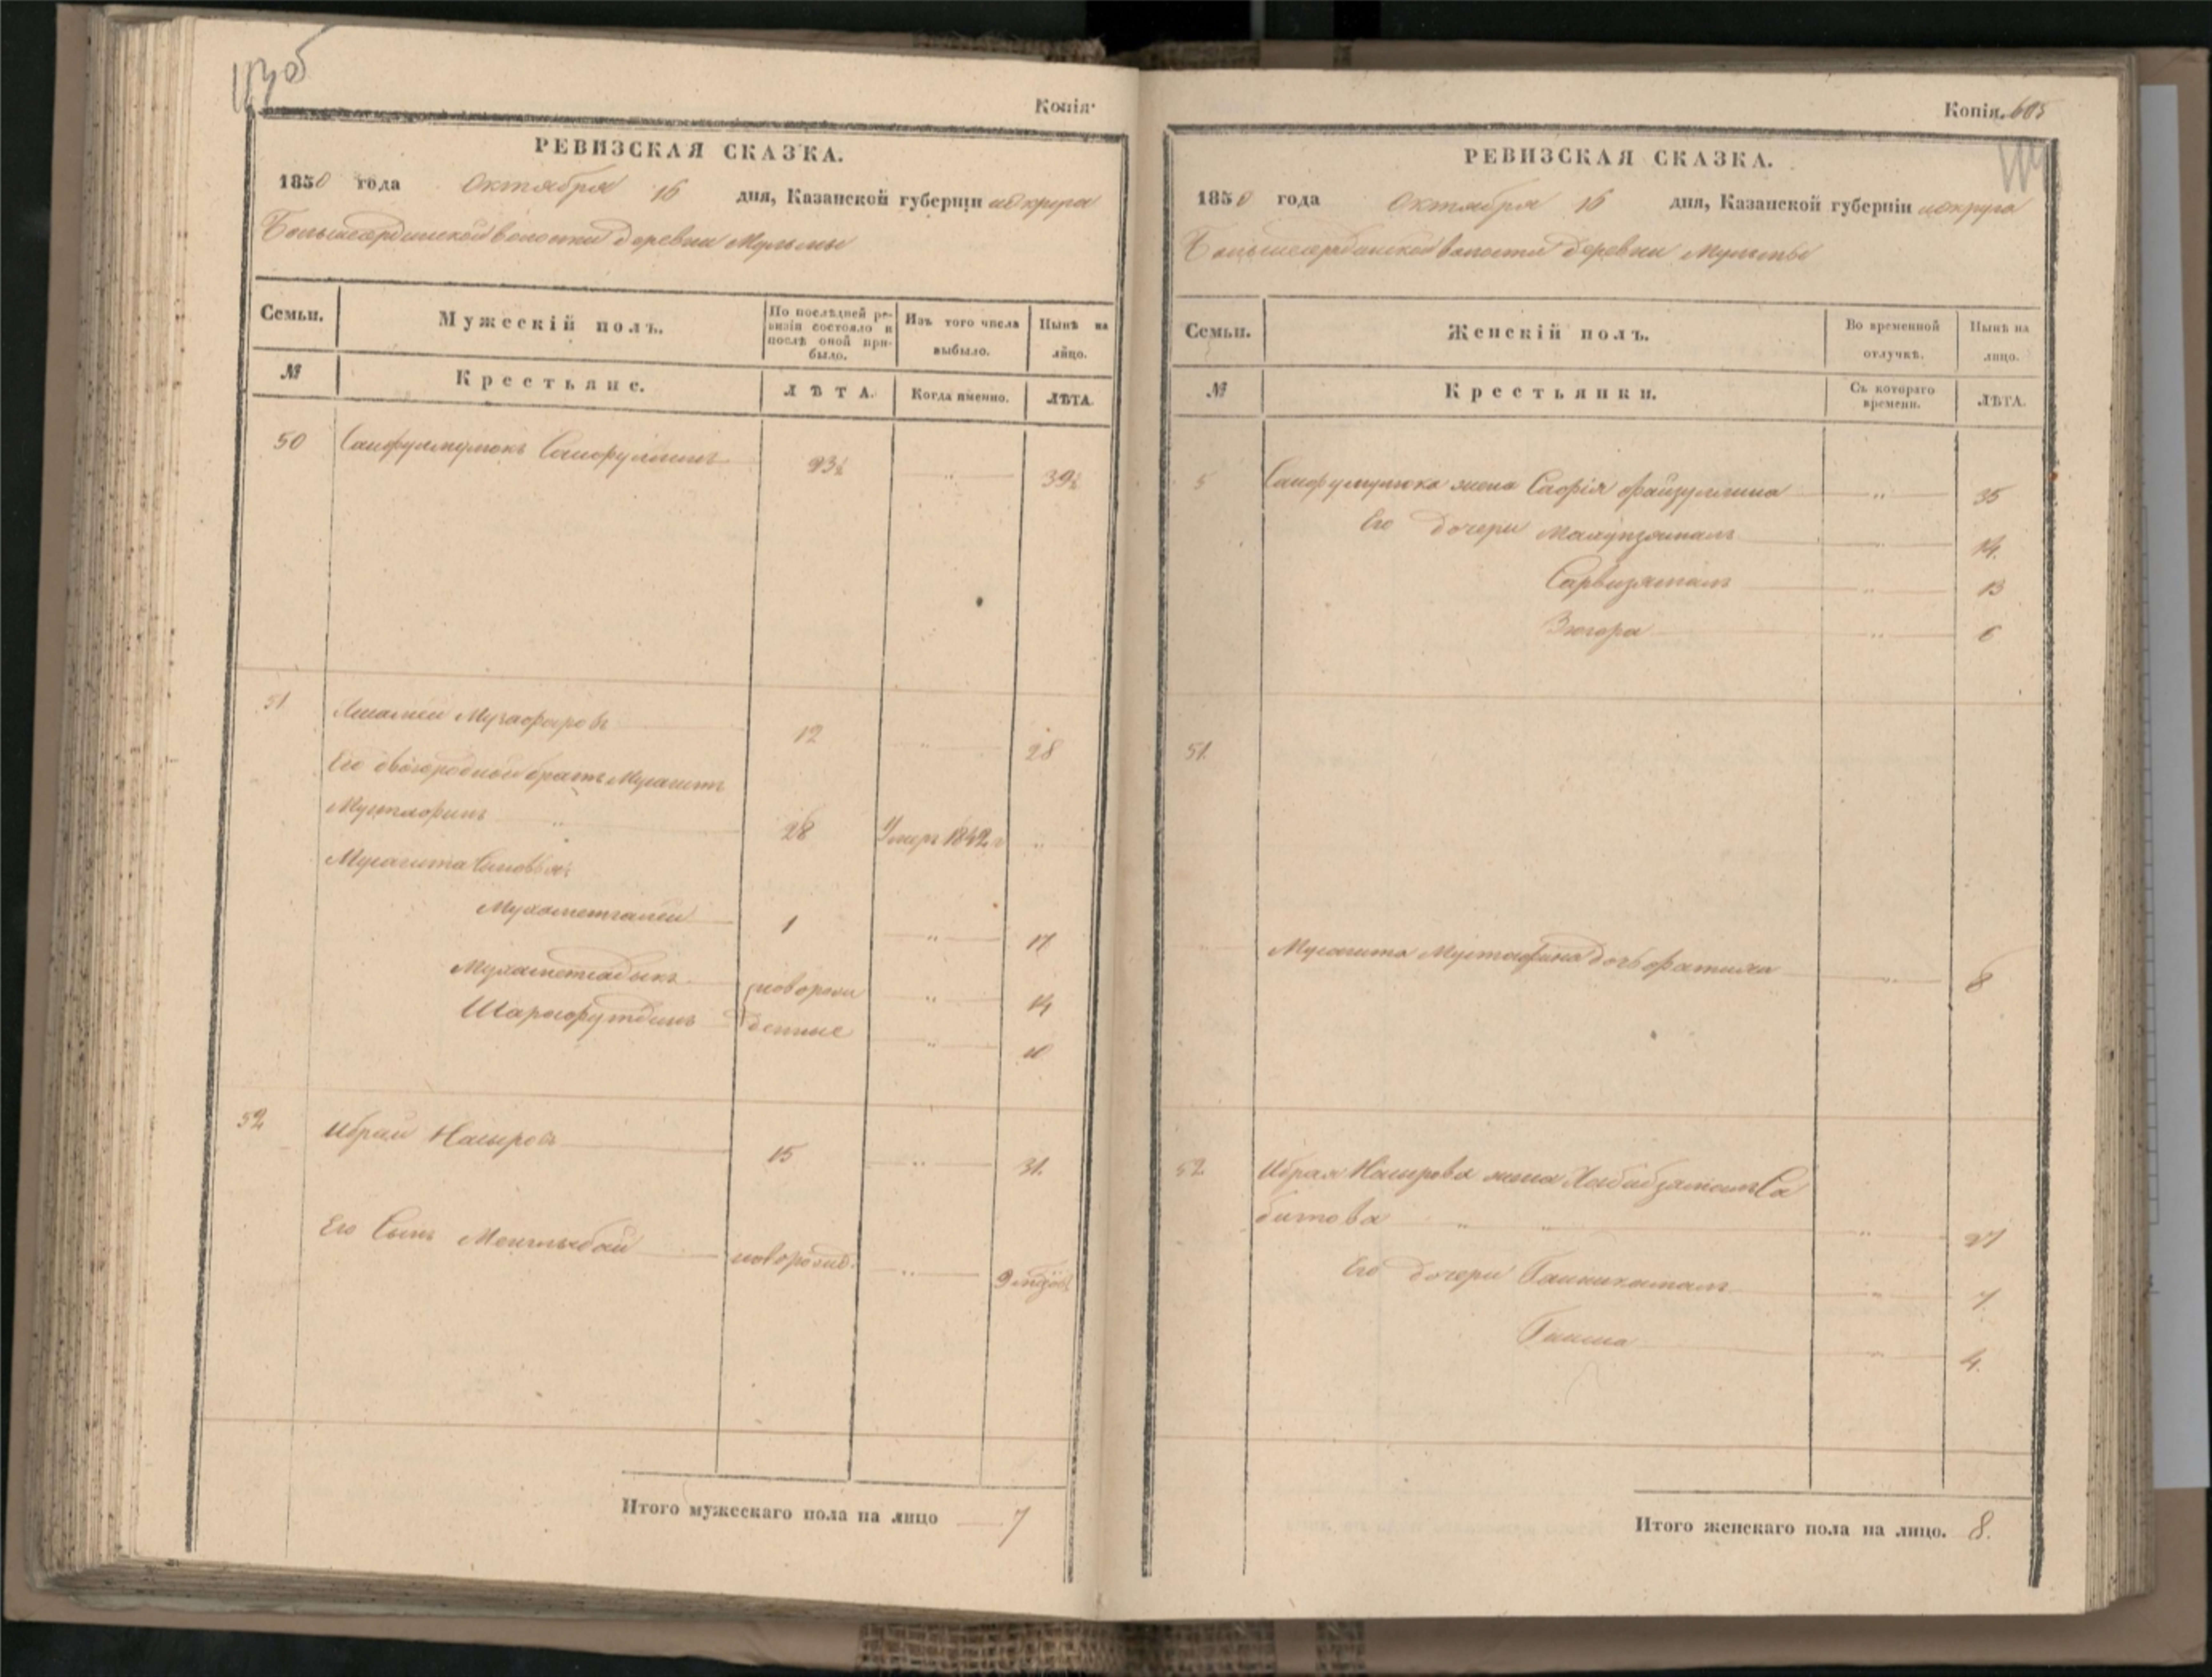 Копія.
РЕВИЗСКАЯ СКАЗКА.
1850 года Октября 16 дня, Казанской губерніи и округа
волости деревни Мульмы
Семьи. Мужескій полъ. По послѣдней ревизіи состояло и послѣ оной прибыло. Изъ того числа выбыло. Нынѣ на лицо.
№ Крестьяне. ЛѢТА. Когда именно. ЛѢТА.
50 23½ „ 39½
51 Музафаровъ 12 „ 28
Его двоюродной братъ Мусагитъ
Мустафинъ „ 28 Умеръ 1842 г „
Мусагита Сыновья:
Мухаметгалей 1 „ 17
Мухаметсадыкъ новорож „ 14
Шарафутдинъ денные „ 10
52 Ибрай Насыровъ 15 „ 31.
Его Сынъ Менглыбай новорожд. „ 9 мѣсяцовъ
Итого мужескаго пола на лицо 7
Копія. 605
РЕВИЗСКАЯ СКАЗКА.
1850 года Октября 16 дня, Казанской губерніи и округа
волости деревни Мульмы
Семьи. Женскій полъ. Во временной отлучкѣ. Нынѣ на лицо.
№ Крестьянки. Съ котораго времени. ЛѢТА.
5 жена Сафія Файзуллина „ 35
Его дочери „ 14.
Сарвизямалъ „ 13
Зюгора „ 6
51.
Мусагита Мустафина дочь Фатиха „ 8
52. Ибрая Насырова жена Хабибзямалъ Са
битова „ „ „ 27
Его дочери „ 7.
„ 4.
Итого женскаго пола на лицо. 8.